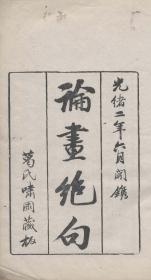 光緒二年六月開鐫
論畫絶句
葛氏嘯園藏板